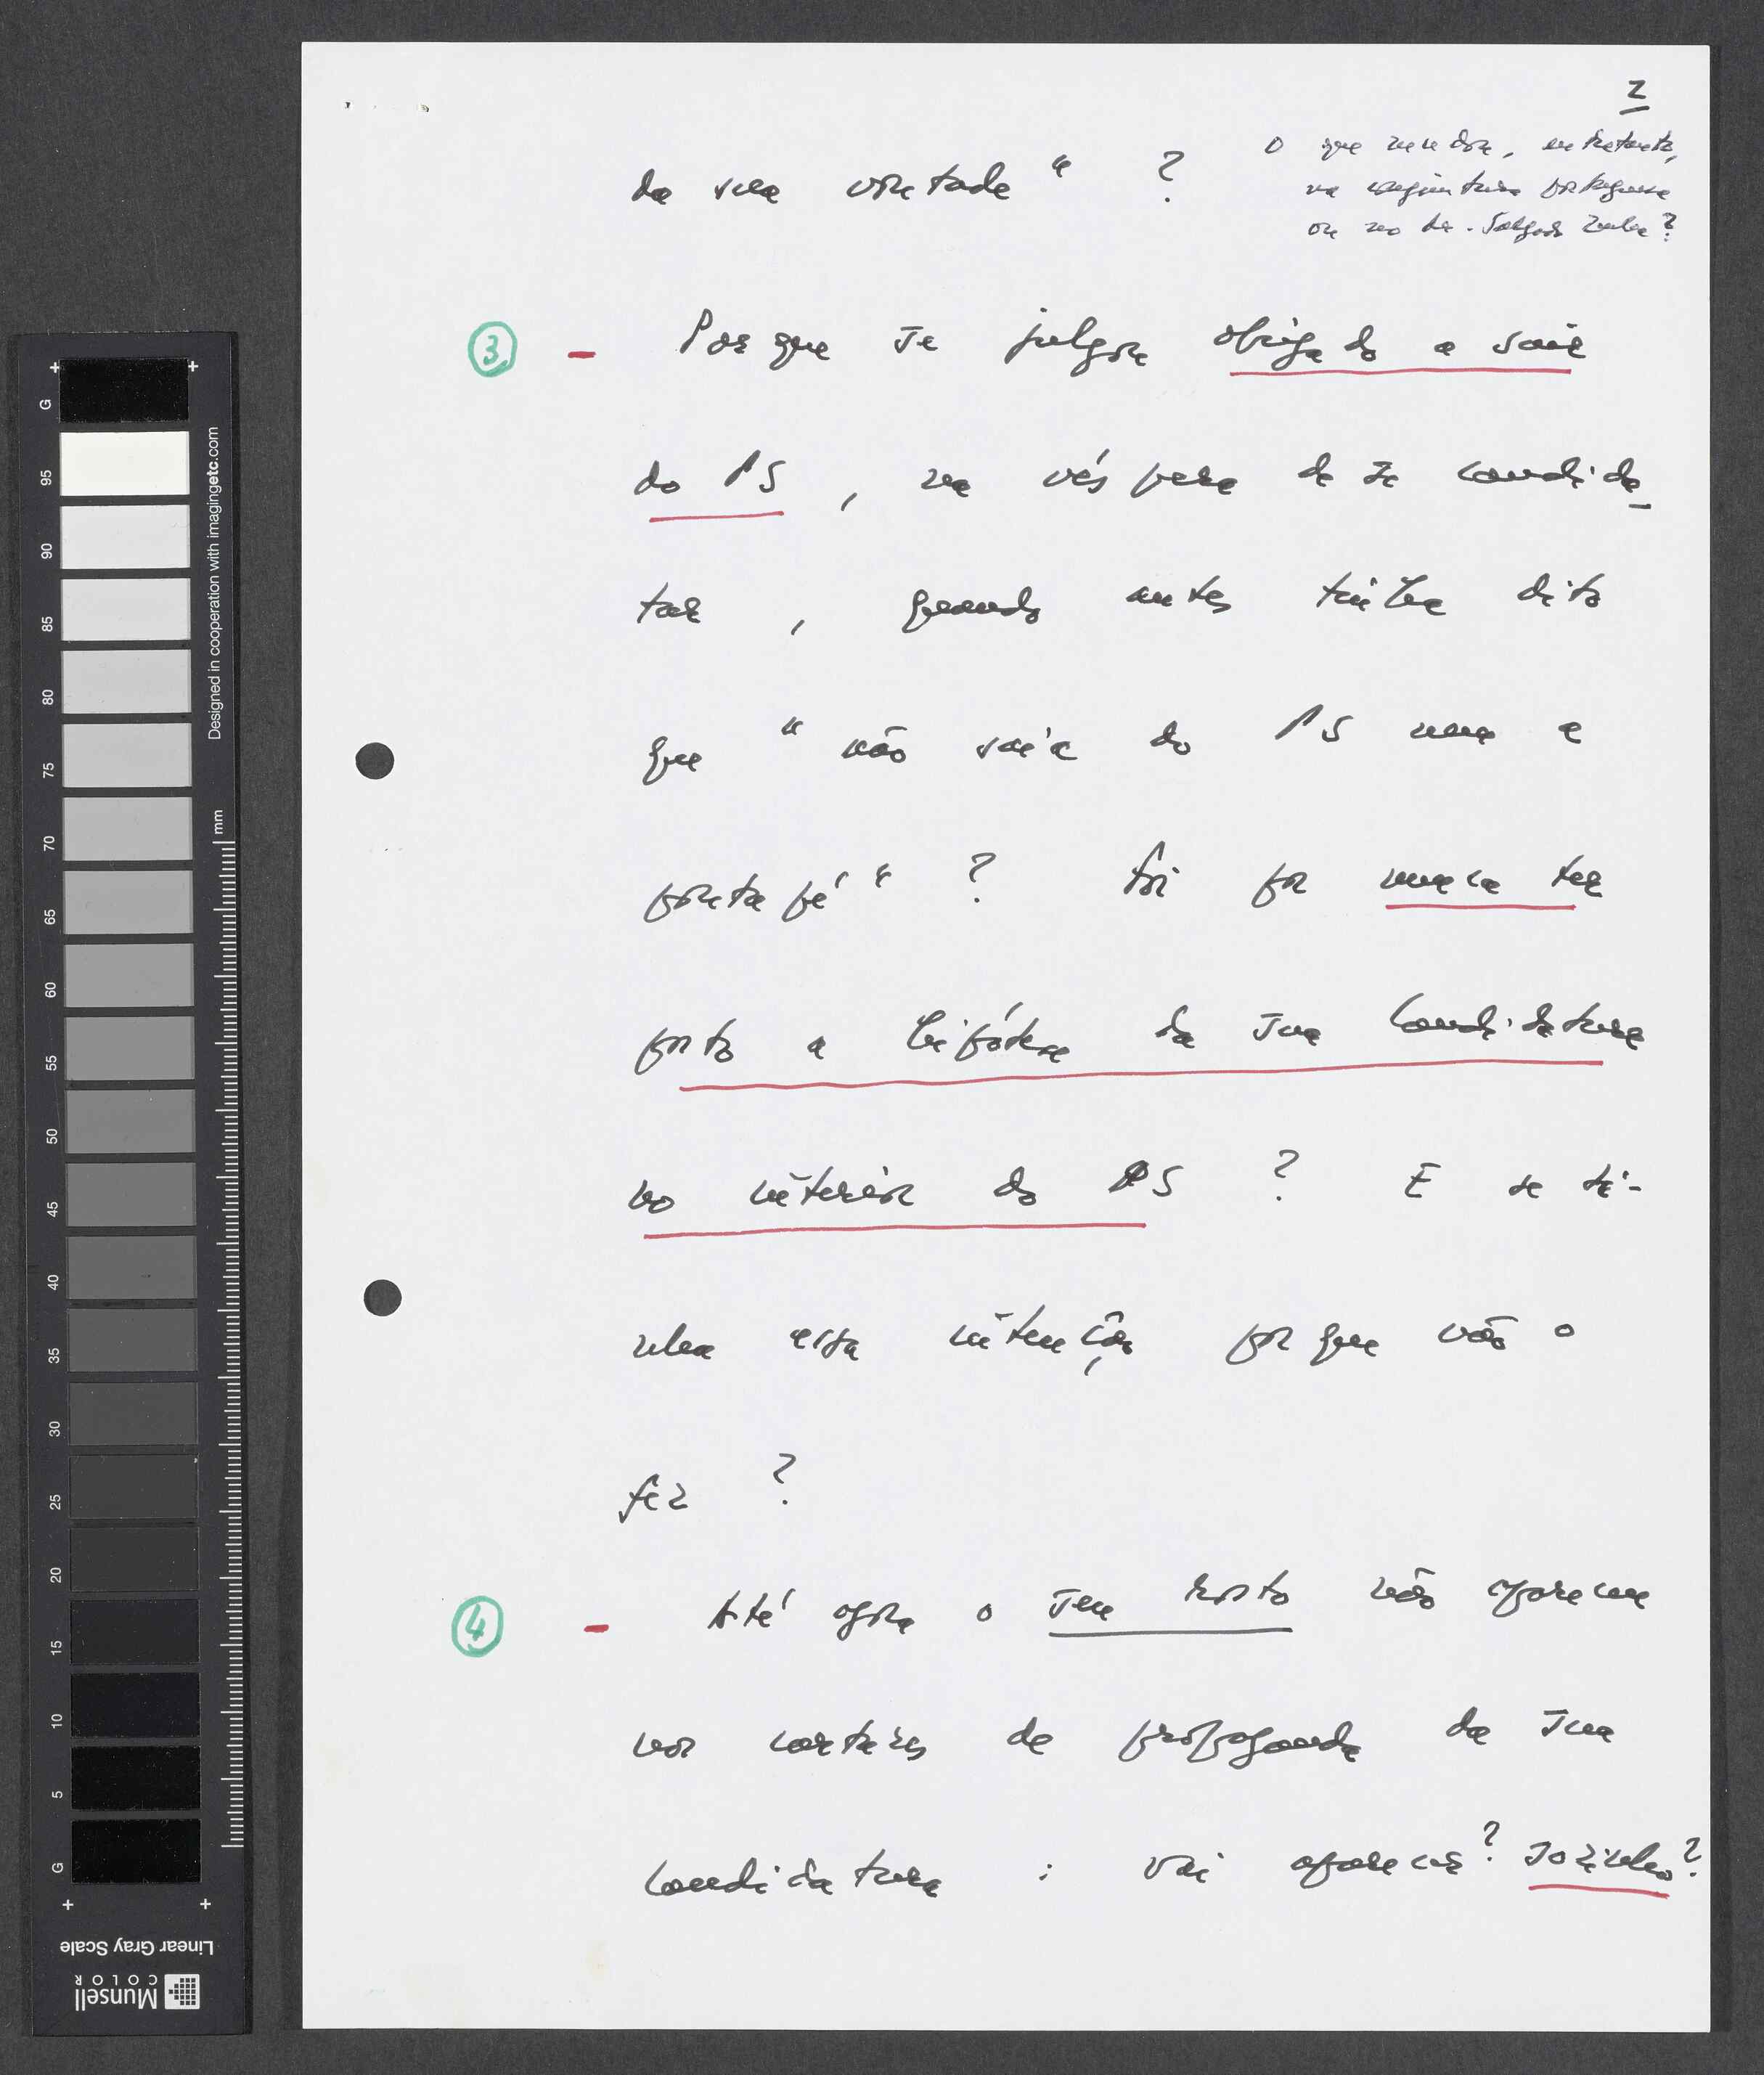 2
da sua vontade" ?
O que mudou, entretanto,
na conjuntura portuguesa
ou no dr. Salgado Zenha?
3 - Porque se julgou obrigado a sair
do PS, na véspera de se candida-
tar, quando antes tinha dito
que "não saía do PS nem a
pontapé" ? Foi por nunca ter
posto a hipótese da sua candidatura
no interior do PS ? E se ti-
nha essa intenção porque não o
fez ?
4 - Até agora o seu rosto não apareceu
nos cartazes de propaganda da sua
candidatura : vai aparecer? Sozinho?
G
95
90
85
80
75
70
65
60
55
50
45
40
35
30
25
20
15
10
5
G
mm
Designed in cooperation with imagingetc.com
Linear Gray Scale
Munsell
COLOR